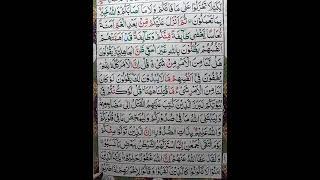 لِّكَيْلَا تَحْزَنُوْا عَلٰى مَا فَاتَكُمْ وَلَا مَآ اَصَابَكُمْ ؕ وَاللّٰهُ خَبِيْرٌۢ
بِمَا تَعْمَلُوْنَ ثُمَّ اَنْزَلَ عَلَيْكُمْ مِّنْۢ بَعْدِ الْغَمِّ اَمَنَةً
نُّعَاسًا يَّغْشٰى طَآئِفَةً مِّنْكُمْ ۙ وَطَآئِفَةٌ قَدْ اَهَمَّتْهُمْ
اَنْفُسُهُمْ يَظُنُّوْنَ بِاللّٰهِ غَيْرَ الْحَقِّ ظَنَّ الْجَاهِلِيَّةِ ؕ يَقُوْلُوْنَ
هَلْ لَّنَا مِنَ الْاَمْرِ مِنْ شَيْءٍ ؕ قُلْ اِنَّ الْاَمْرَ كُلَّهٗ لِلّٰهِ ؕ
يُخْفُوْنَ فِيْٓ اَنْفُسِهِمْ مَّا لَا يُبْدُوْنَ لَكَ ؕ يَقُوْلُوْنَ لَوْ كَانَ
لَنَا مِنَ الْاَمْرِ شَيْءٌ مَّا قُتِلْنَا هٰهُنَا ؕ قُلْ لَّوْ كُنْتُمْ فِيْ
بُيُوْتِكُمْ لَبَرَزَ الَّذِيْنَ كُتِبَ عَلَيْهِمُ الْقَتْلُ اِلٰى مَضَاجِعِهِمْ ۚ
وَلِيَبْتَلِيَ اللّٰهُ مَا فِيْ صُدُوْرِكُمْ وَلِيُمَحِّصَ مَا فِيْ قُلُوْبِكُمْ ؕ
وَاللّٰهُ عَلِيْمٌۢ بِذَاتِ الصُّدُوْرِ اِنَّ الَّذِيْنَ تَوَلَّوْا مِنْكُمْ
يَوْمَ الْتَقَى الْجَمْعٰنِ ۙ اِنَّمَا اسْتَزَلَّهُمُ الشَّيْطٰنُ بِبَعْضِ مَا كَسَبُوْا ۚ
وَلَقَدْ عَفَا اللّٰهُ عَنْهُمْ ؕ اِنَّ اللّٰهَ غَفُوْرٌ حَلِيْمٌ يٰٓاَيُّهَا